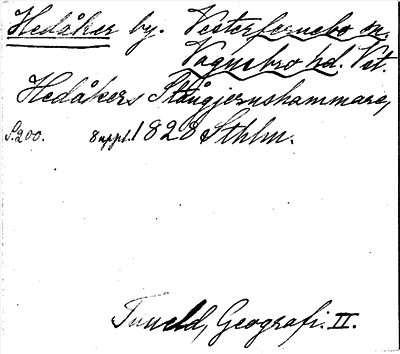 Hedåker by. Vesterfernebo sn.
Vagnsbro hd. Vst.
Hedåkers Stångjernshammare,
S.200. 8 uppl. 1828 Sthlm.
Tuneld, Geografi. II.